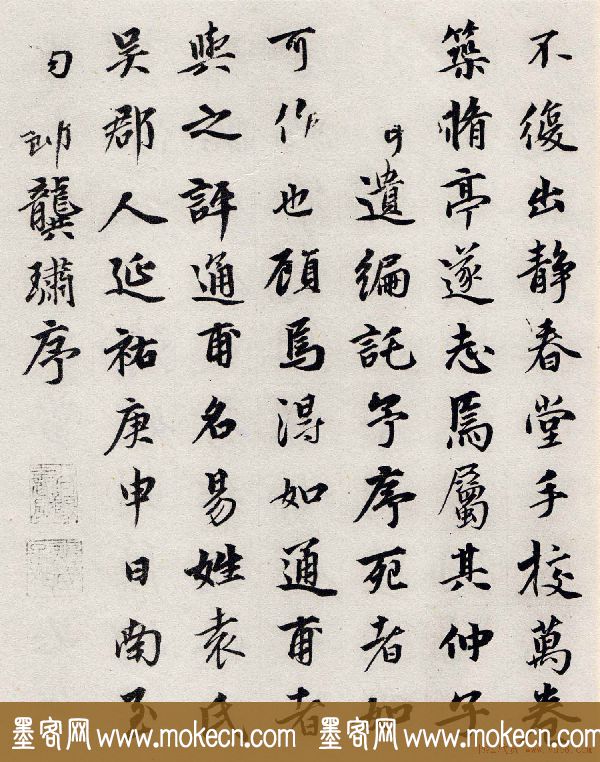 不復出靜春堂手校萬卷
築惰亭遂志焉屬其仲子
遺編託予序死者如
可作也顧焉得如通甫者
與之評通甫名易姓袁氏
吳郡人延祐庚申日南至
龔璛序
墨客网 www.mokecn.com 墨客网 www.mokecn.com